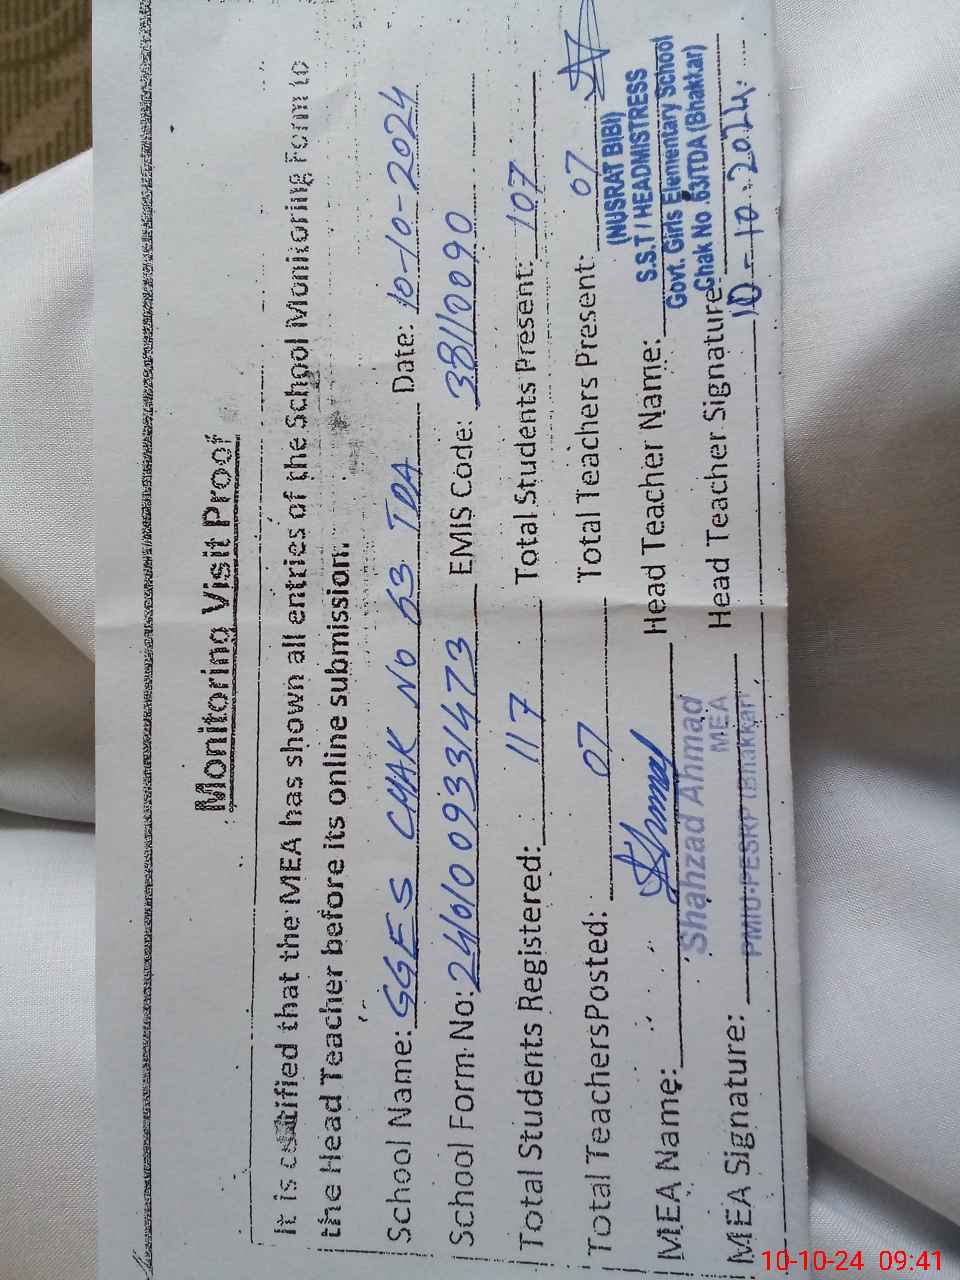 Monitoring Visit Proof
It is certified that the MEA has shown all entries of the School Monitoring Form to
the Head Teacher before its online submission.
School Name: GGES CHAK No 63 TDA Date: 10-10-2024
School Form No: 2401009331473 EMIS Code: 38110090
Total Students Registered: 117 Total Students Present: 107
Total Teachers Posted: 07 Total Teachers Present: 07
MEA Name: Shahzad Ahmad Head Teacher Name: (NUSRAT BIBI)
MEA S.S.T / HEADMISTRESS
PMIU-PESRP (Bhakkar) Govt. Girls Elementary School
Chak No .63/TDA (Bhakkar)
MEA Signature: Head Teacher Signature:
10-10-2024
10-10-24 09:41